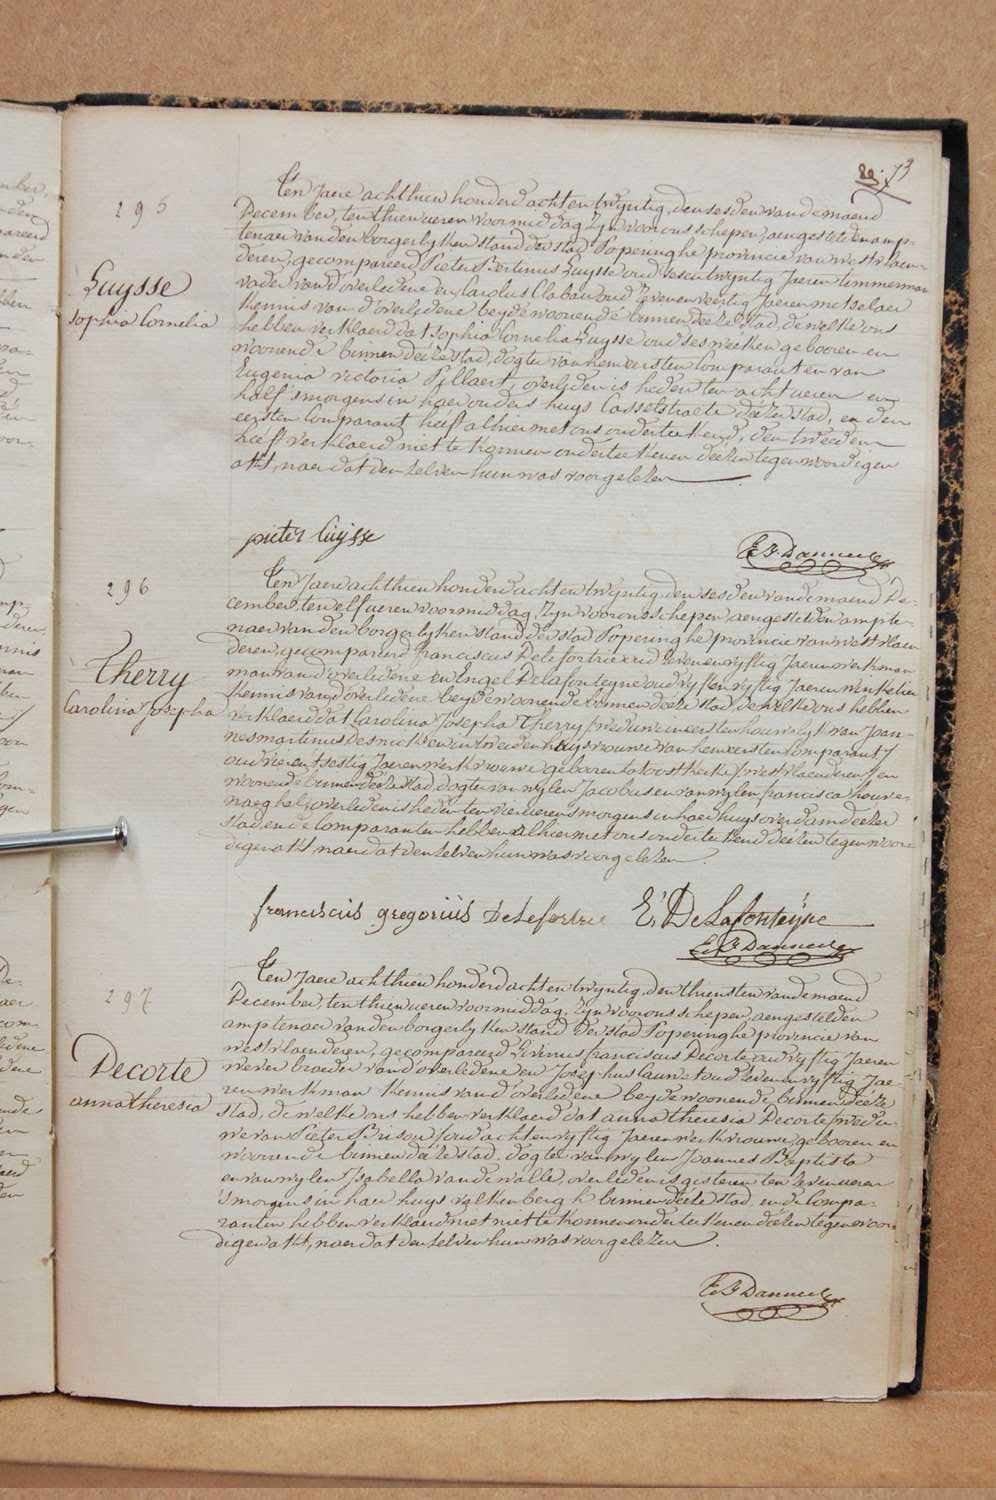 73
295
Luysse
Sophia Cornelia
Ten Jaere achthien honderd acht en twyntig, den sesden van de maend
December, ten thien ueren voormiddag, zyn voor ons schepen, aengestelden amp-
tenaer van den borgerlyken stand der stad Poperinghe provincie van westvlaen-
deren, gecompareerd Pieter Bertinus Luysse oud sesentwyntig Jaeren timmerman
vader van d'overledene en Carolus Clabau oud zevenenveertig Jaeren metselaer
kennis van d'overledene beyde woonende binnen deéze stad, de welke ons
hebben verklaerd dat Sophia Cornelia Luysse oud ses weeken gebooren en
woonende binnen deéze stad, dogter van hem eersten Comparant en van
Eugenia victoria Pillaert, overleden is heden ten acht ueren en
half s'morgens in haer ouders huys Casselstraete deézer stad, en den
eersten Comparant heeft alhier met ons onderteekend, den tweeden
heeft verklaerd niet te konnen onderteekenen deézen tegenwoordigen
akt, naer dat den zelven hun was voorgelezen
pieter luijsse
E. F. Danneel
296
Therry
Carolina Josepha
Ten Jaere achthien honderd acht en twyntig, den sesden van de maend De-
cember, ten elf ueren voormiddag, zyn voor ons schepen, aengestelden ampte-
naer van den borgerlyken stand der stad Poperinghe provincie van westvlaen
deren, gecompareerd franciscus Delefortrie oud zevenenvyftig Jaeren werkman
man van d'overledene en Engel Delafonteyne oud vyfenvyftig Jaeren winkelier
kennis van d'overledene beyde woonende binnen deéze stad, de welke ons hebben
verklaerd dat Carolina Josepha Therry /weduwe in eersten houwelyk van Joan-
nes martinus Desnick en in tweeden huysvrouwe van hem eersten Comparant/
oud vierentsestig Jaeren werkvrouwe gebooren tot oostkerke /westvlaenderen/ en
woonende binnen deéze stad, dogter van wylen Jacobus en van wylen francisca houve-
naeghel, overleden is heden ten vier ueren smorgens in haer huys overdam deézer
stad, en de Comparanten hebben alhier met ons onderteekend deézen tegenwoor-
digen akt, naer dat den zelven hun was voorgelezen.
franciscús gregoriús Delefortrie E, DeLafonteijne
E. F. Danneel
297
Decorte
anna theresia
Ten Jaere achthien honderd acht en twyntig, den thiensten van de maend
December, ten thien ueren voormiddag, zyn voor ons schepen, aengestelden
amptenaer van den borgerlyken stand der stad Poperinghe provincie van
westvlaenderen, gecompareerd Livinus franciscus Decorte oud vyftig Jaeren
wever broeder van d'overledene en Josephus Cauwet oud zevenenvyftig Jae-
ren werkman kennis van d'overledene beyde woonende binnen deéze
stad, de welke ons hebben verklaerd dat anna theresia Decorte /wedu-
we van Pieter Brison/ oud achtenvyftig Jaeren werkvrouwe, gebooren en
woonende binnen deéze stad, dogter van wylen Joannes Baptista
en van wylen Isabella vandewalle, overleden is gisteren ten zeven ueren
s'morgens in haer huys valkenbergh binnen deéze stad, en de Compa-
ranten hebben verklaerd niet te konnen onderteekenen deézen tegenwoor
digen akt, naer dat den zelven hun was voorgelezen.
E. F. Danneel